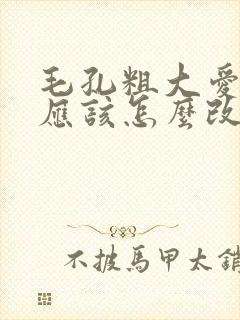 毛孔粗大愛
應該怎麼改
不披馬甲太銷